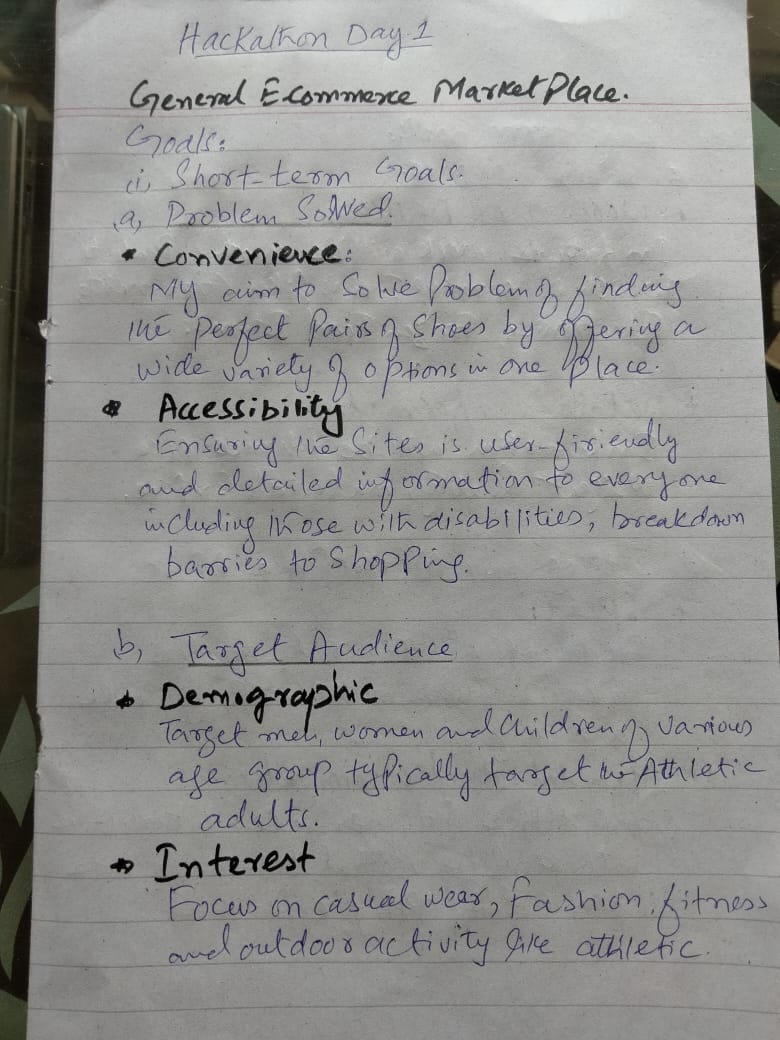 Hackathon Day 1
General Ecommerce Market Place.
Goals:
(i) Short-term Goals.
a, Problem Solved.
* Convenience:
My aim to Solve Problem of finding
the perfect Pairs of Shoes by offering a
wide variety of options in one place.
* Accessibility
Ensuring the Sites is user-friendly
and detailed information to everyone
including those with disabilities, breakdown
barries to Shopping.
b, Target Audience
* Demographic
Target men, women and Children of various
age group typically target the Athletic
adults.
* Interest
Focus on casual wear, Fashion, fitness
and outdoor activity like athletic.